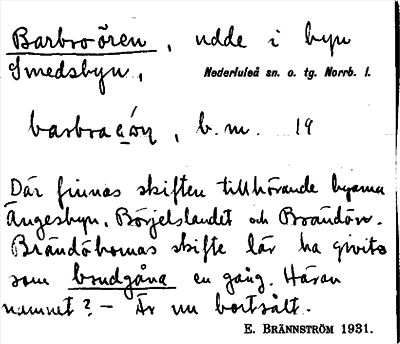 Barbroören, udde i byn
Smedsbyn, Nederluleå sn. o. tg. Norrb. l.
barbra, b.m. 19
Där finnas skiften tillhörande byarna
Ängesbyn, Börjelslandet och Brändön.
Brändöbornas skifte lär ha givits
som brudgåva en gång. Härav
namnet? – Är nu bortsålt.
E. BRÄNNSTRÖM 1931.